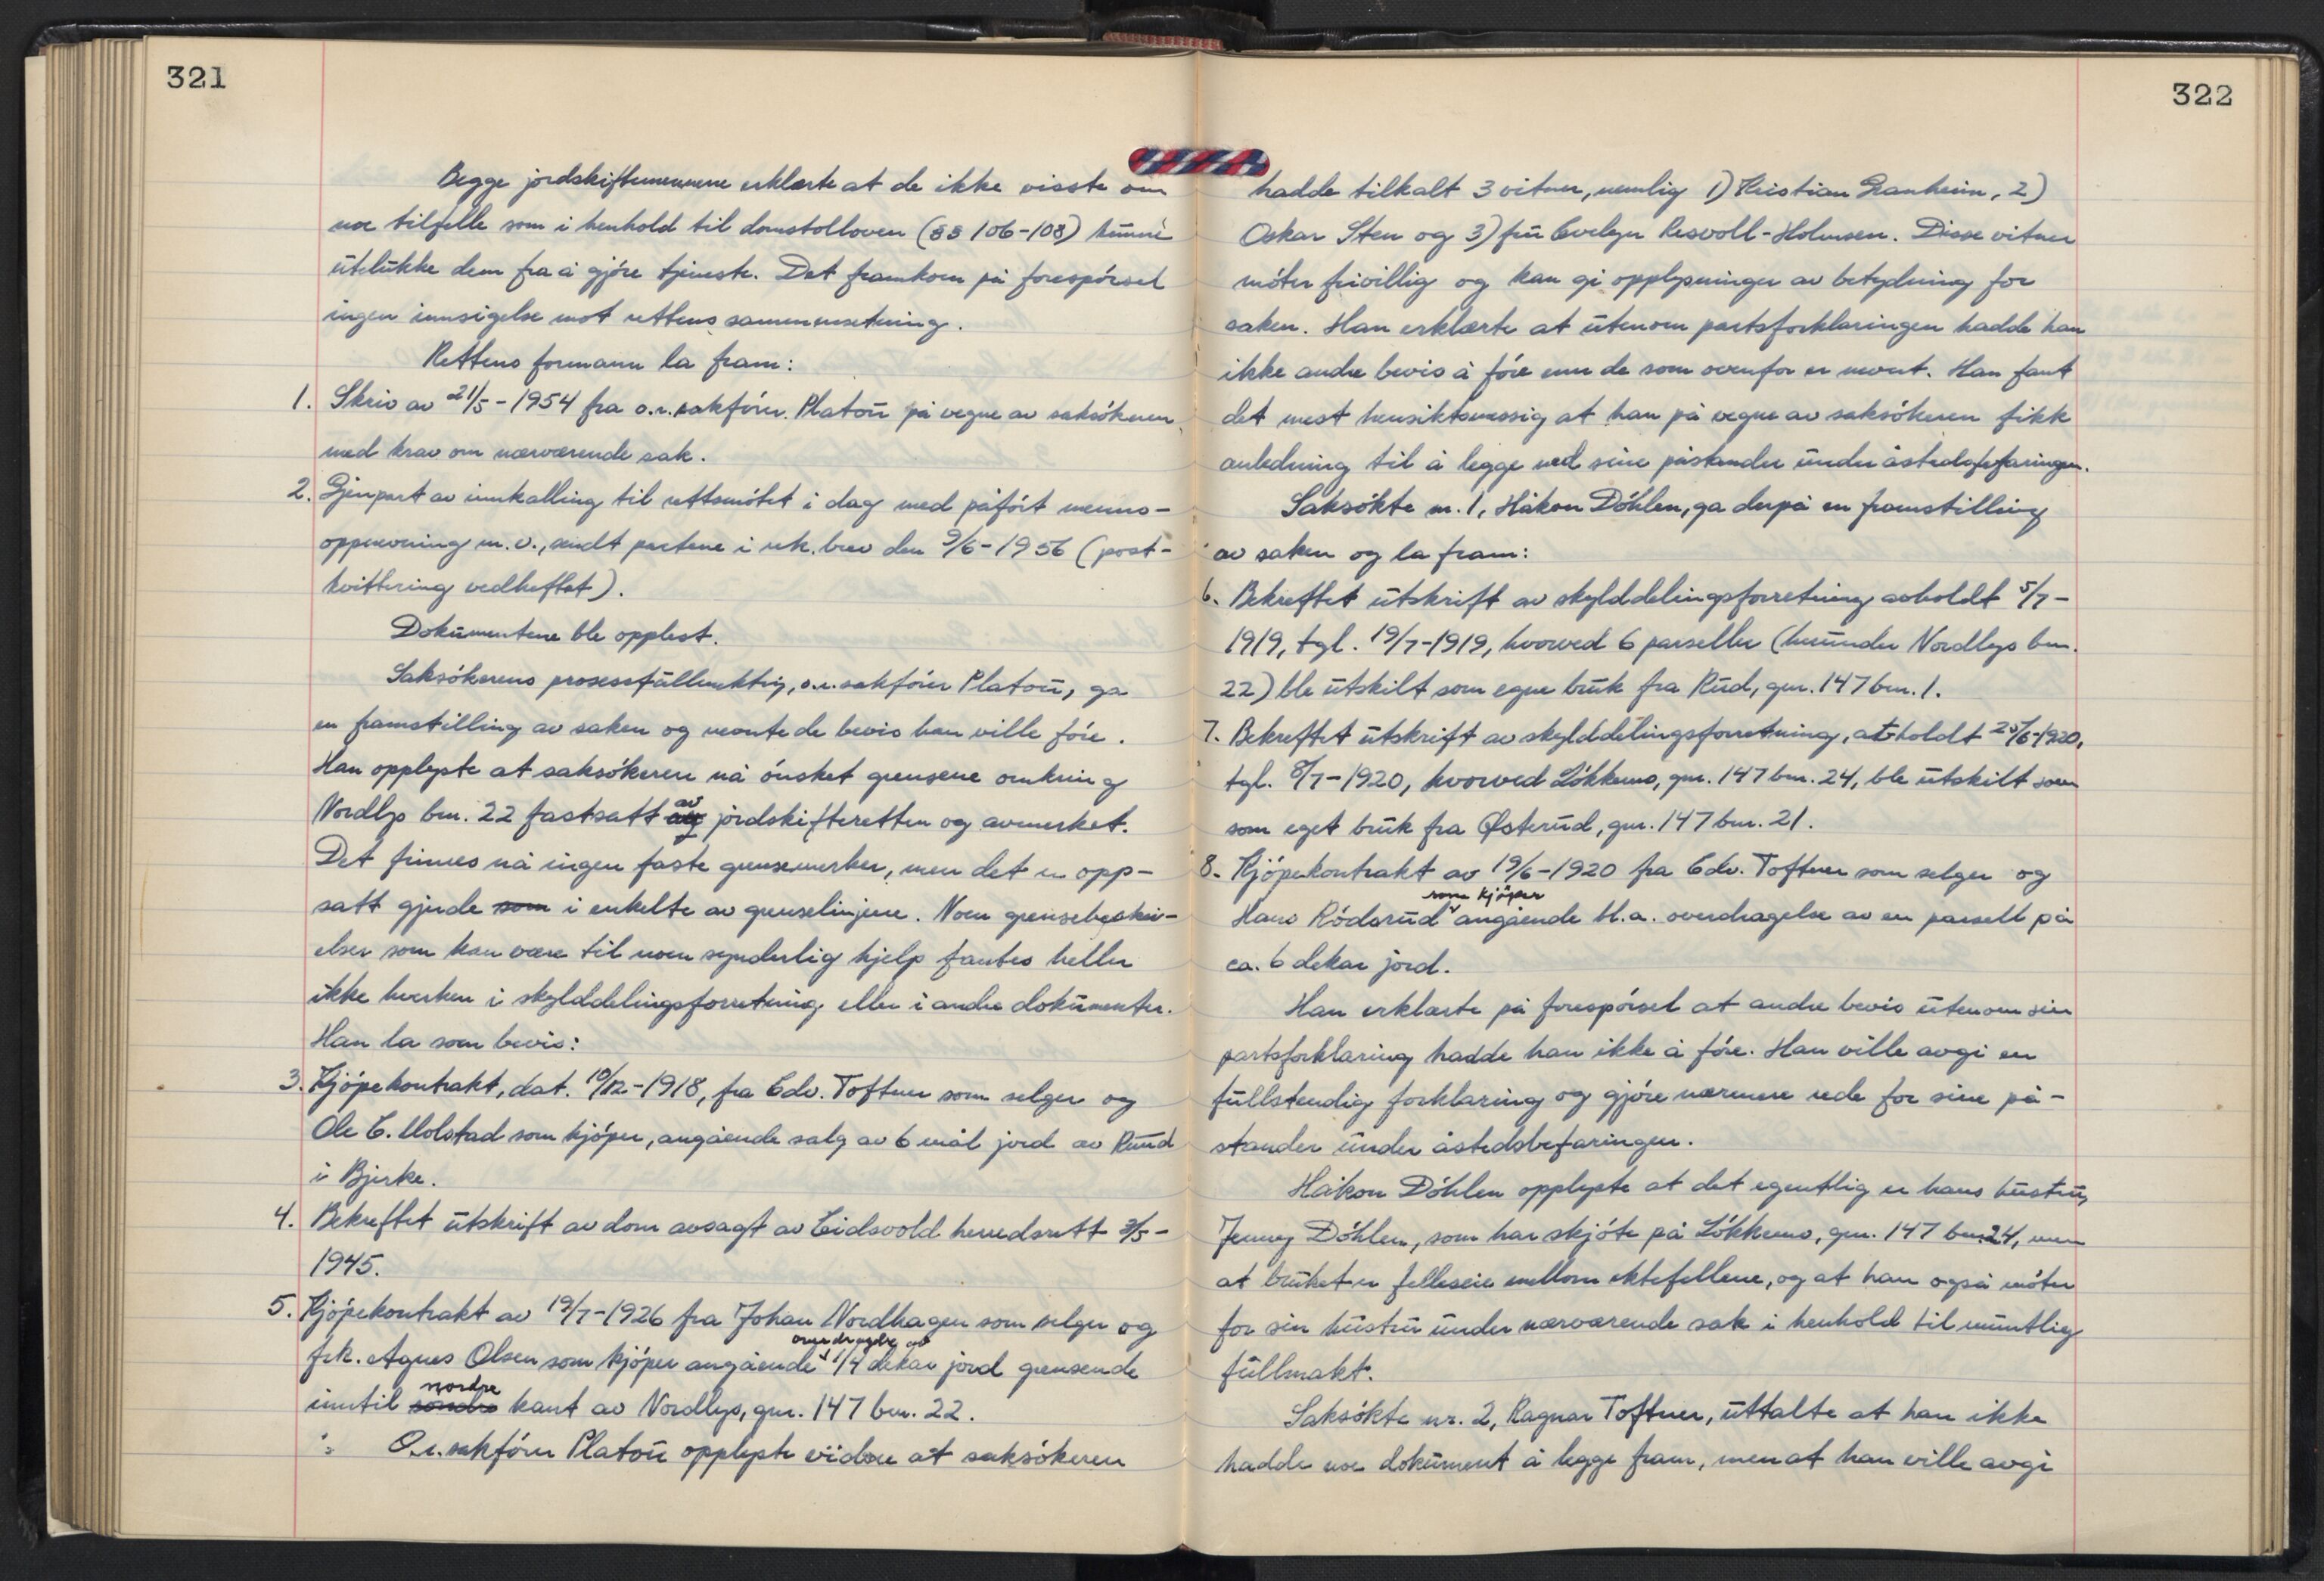 321
Begge jordskiftemennene erklærte at de ikke visste om
noe tilfelle som i henhold til domstolloven (§§ 106-108) kunne
utelukke dem fra å gjøre tjeneste. Det framkom på forespørsel
ingen innsigelse mot rettens sammensetning.
Rettens formann la fram:
1. Skriv av 21/5-1954 fra o.r.sakfører Platou på vegne av saksøkeren
med krav om nærværende sak.
2. Gjenpart av innkalling til rettsmøtet i dag med påført menns-
oppnevning m.v., sendt partene i rek. brev den 9/6-1956 (post-
kvittering vedheftet).
Dokumentene ble opplest.
Saksøkerens prosessfullmektig, o.r.sakfører Platou, ga
en framstilling av saken og nevnte de bevis han ville føre.
Han opplyste at saksøkeren nå ønsket grensene omkring
Nordlys bnr. 22 fastsatt av jordskifteretten og avmerket.
Det finnes nå ingen faste grensemerker, men det er opp-
satt gjerde som i enkelte av grenselinjene. Noen grensebeskriv-
elser som kan være til noen synderlig hjelp fantes heller
ikke hverken i skylddelingsforretning eller i andre dokumenter.
Han la som bevis:
3. Kjøpekontrakt, dat. 10/12-1918, fra Edv. Toftner som selger og
Ole E. Molstad som kjøper, angående salg av 6 mål jord av Ruud
i Bjerke.
4. Bekreftet utskrift av dom avsagt av Eidsvold herredsrett 3/5-
1945.
5. Kjøpekontrakt av 19/7-1926 fra Johan Nordhagen som selger og
frk. Agnes Olsen som kjøper angående overdragelse av 1/4 dekar jord grensende
inntil søndre nordre kant av Nordlys, gnr. 147 bnr. 22.
O.r.sakfører Platou opplyste videre at saksøkeren
322
hadde tilkalt 3 vitner, nemlig 1) Kristian Granheim, 2)
Oskar Sten og 3) fru Evelyn Resvoll-Holmsen. Disse vitner
møter frivillig og kan gi opplysninger av betydning for
saken. Han erklærte at utenom partsforklaringen hadde han
ikke andre bevis å føre enn de som ovenfor er nevnt. Han fant
det mest hensiktsmessig at han på vegne av saksøkeren fikk
anledning til å legge ned sine påstander under åstedsbefaringen.
Saksøkte nr. 1, Håkon Döhlen, ga derpå en framstilling
av saken og la fram:
6. Bekreftet utskrift av skylddelingsforretning avholdt 5/7-
1919, tgl. 19/7-1919, hvorved 6 parseller (herunder Nordlys bnr.
22) ble utskilt som egne bruk fra Rud, gnr. 147 bnr. 1.
7. Bekreftet utskrift av skylddelingsforretning, avholdt 25/6-1920,
tgl. 8/7-1920, hvorved Løkkemo, gnr. 147 bnr. 24, ble utskilt som
som eget bruk fra Østerud, gnr. 147 bnr. 21.
8. Kjøpekontrakt av 19/6-1920 fra Edv. Toftner som selger og
Hans Rødsrud som kjøper angående bl.a. overdragelse av en parsell på
ca. 6 dekar jord.
Han erklærte på forespørsel at andre bevis utenom sin
partsforklaring hadde han ikke å føre. Han ville avgi en
fullstendig forklaring og gjøre nærmere rede for sine på-
stander under åstedsbefaringen.
Håkon Döhlen opplyste at det egentlig er hans hustru,
Jenny Döhlen, som har skjøte på Løkkemo, gnr. 147 bnr. 24, men
at bruket er felleseie mellom ektefellene, og at han også møter
for sin hustru under nærværende sak i henhold til muntlig
fullmakt.
Saksøkte nr. 2, Ragnar Toftner, uttalte at han ikke
hadde noe dokument å legge fram, men at han ville avgi